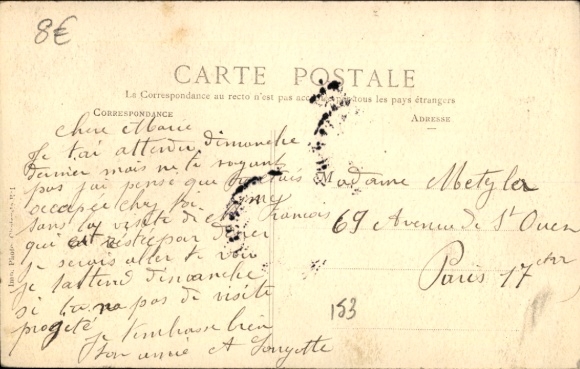 8€
CARTE POSTALE
La Correspondance au recto n'est pas acceptée par tous les pays étrangers
CORRESPONDANCE
ADRESSE
Chere Marie
Je t'ai attendu dimanche
dernier mais ne te voyant
pas j'ai pensé que tu étais
occupée chez toi
sans la visite de Mme François
qui est restée par diner
je serais aller te voir
je t'attend dimanche
si tu na pas de visite
projeté
Je t'embrasse bien
Ton amie A
Madame Metzler
69 Avenue de St Ouen
Paris 17
153